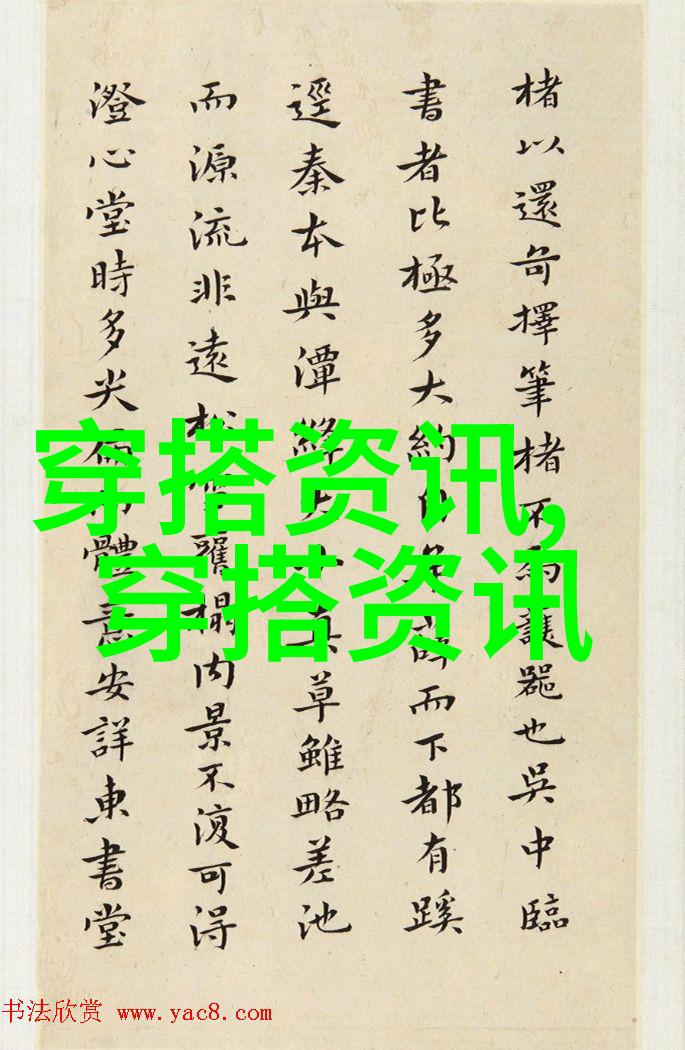 楮以還奇擇筆楮不器也吳中臨
書者比極多大約而下都有蹊
逕秦本與潭絳大小真草雖略差池
而源流非遠松雪舊榻內景不復可得
澄心堂時多尖體意安詳東書堂
穿搭资讯,
穿搭资讯
书法欣赏 www.yac8.com